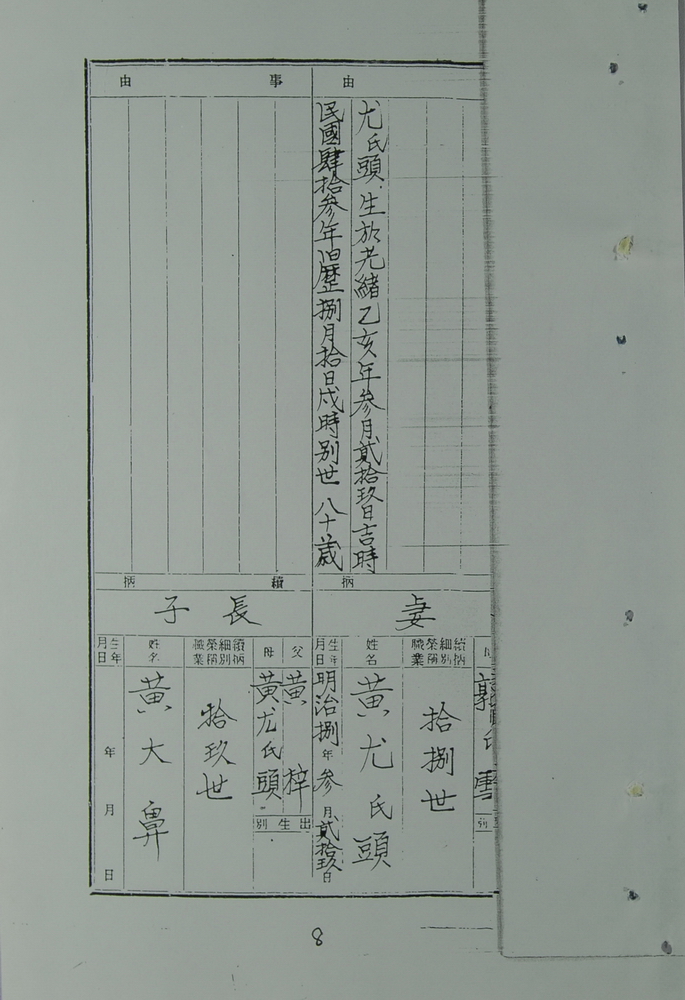 由
尤氏頭 生於光緒乙亥年參月貳拾玖日吉時
民國肆拾參年旧歷捌月拾日戌時別世 八十歲
柄
妻
續柄細別
榮稱職業
拾捌世
姓名
黃尤氏頭
生年月日
明治捌年參月貳拾玖日
事由
續柄
長子
父
黃梓
母
黃尤氏頭
出生別
續柄細別
榮稱職業
拾玖世
姓名
黃大鼻
生年月日
年月日
8